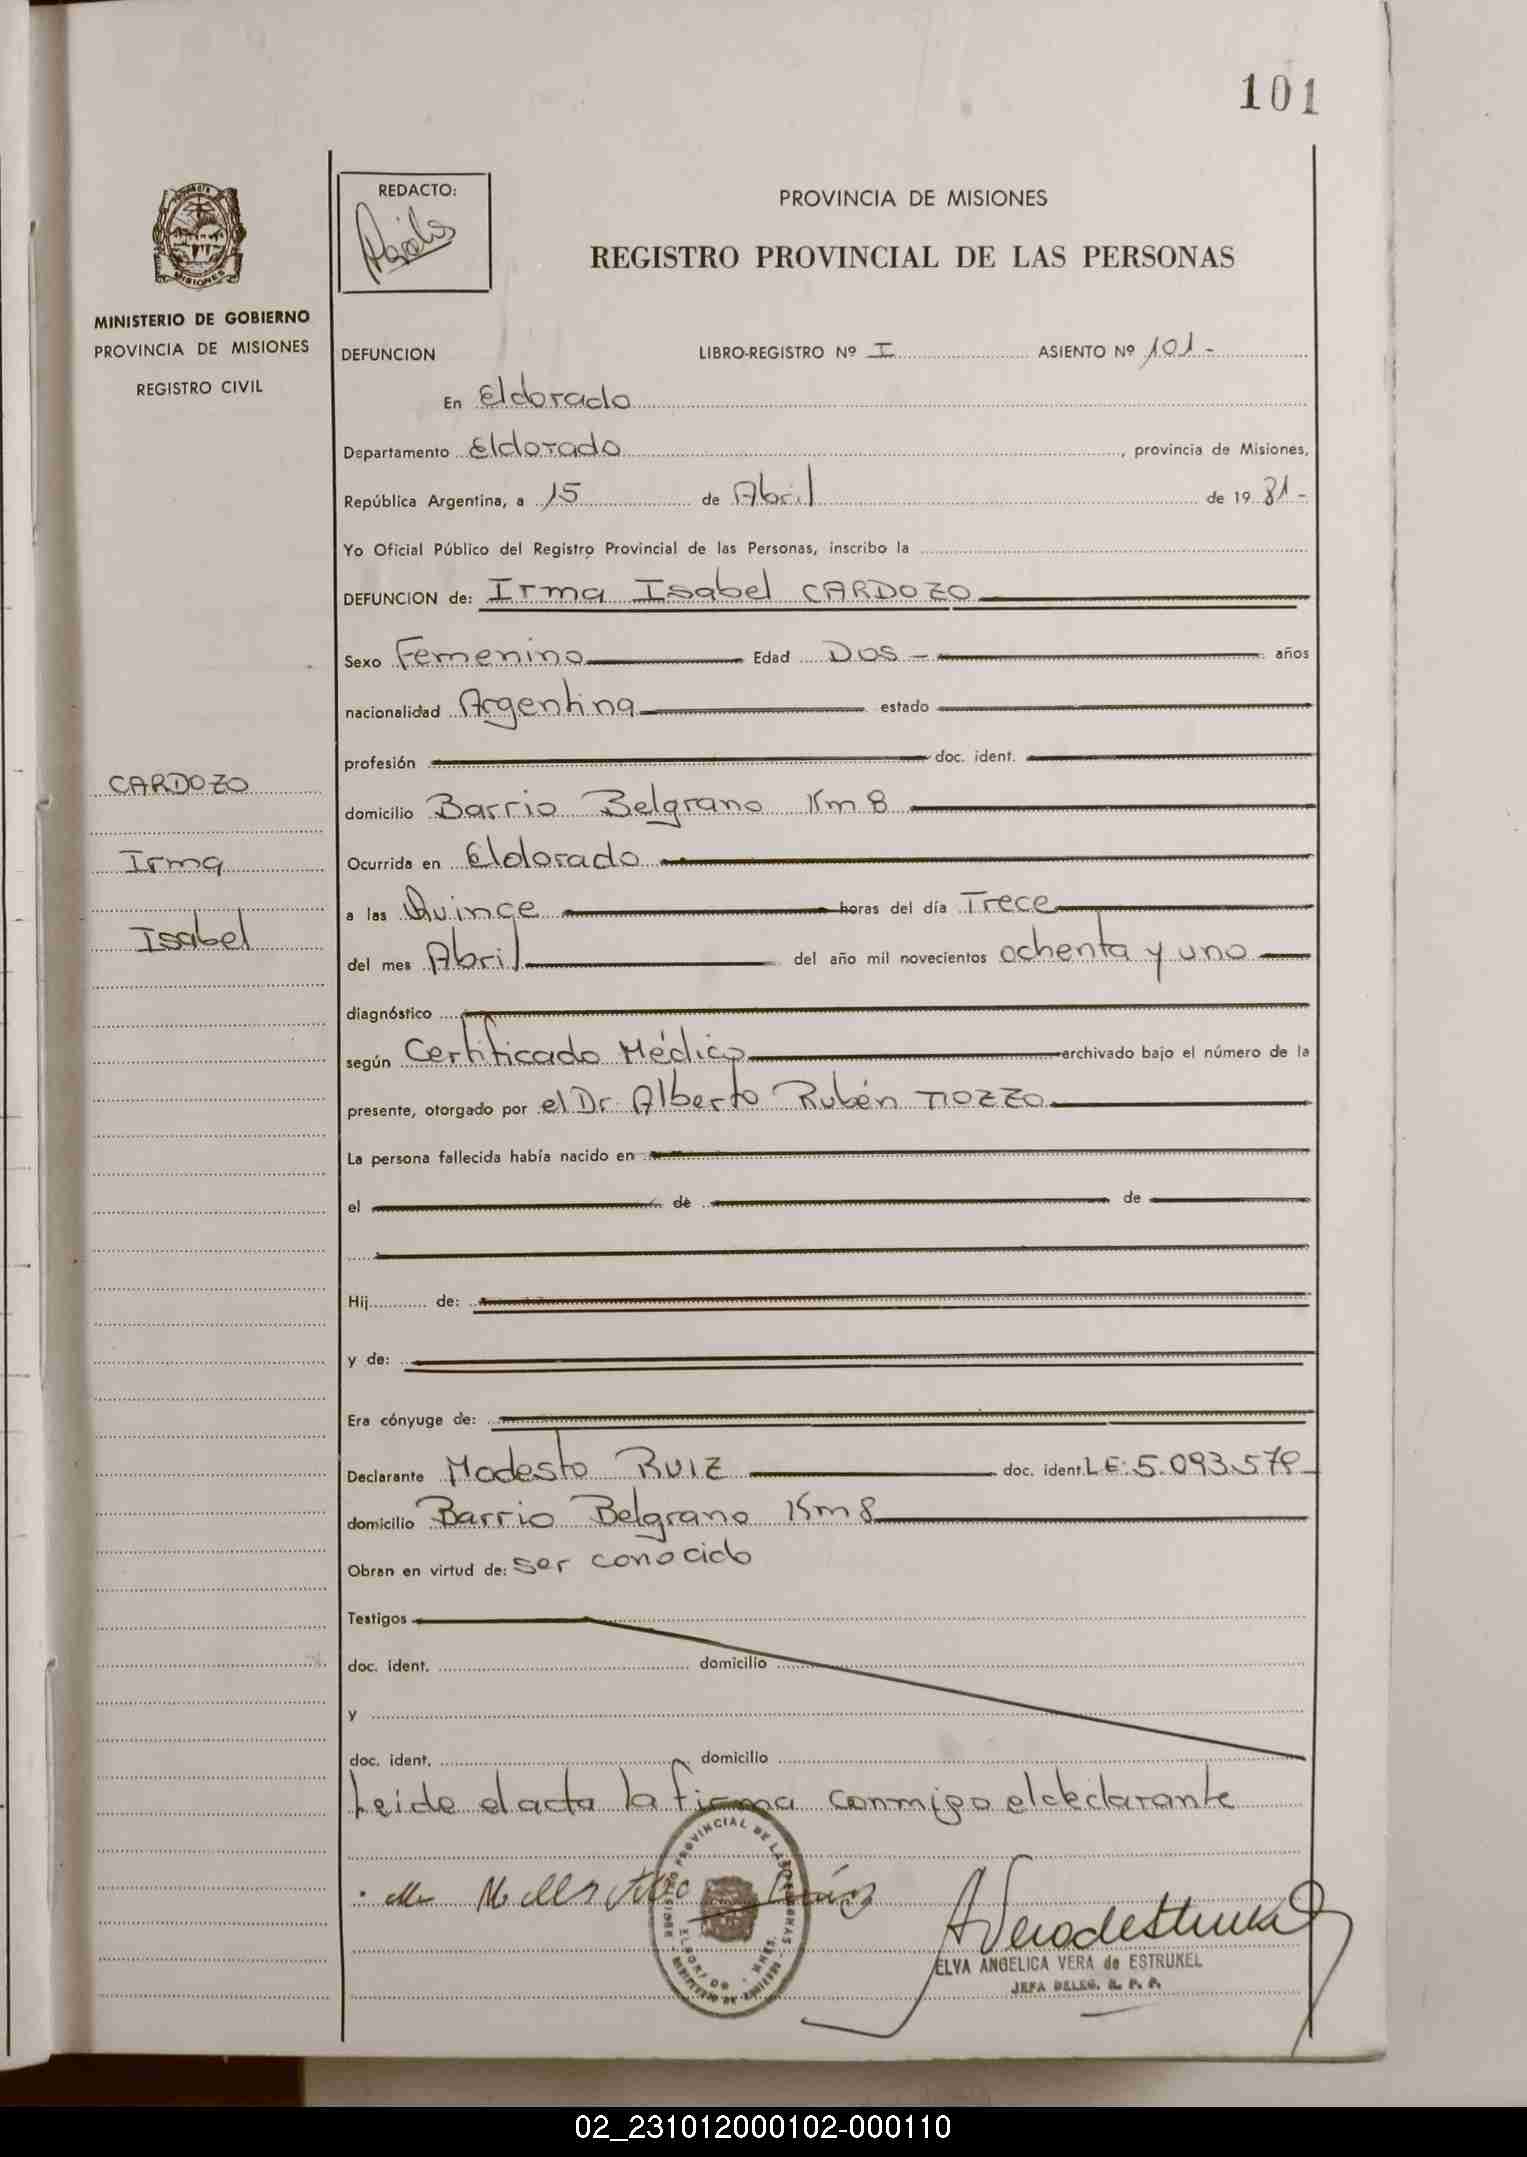 101
REDACTO:
PROVINCIA DE MISIONES
REGISTRO PROVINCIAL DE LAS PERSONAS
MISIONES
MINISTERIO DE GOBIERNO
PROVINCIA DE MISIONES
REGISTRO CIVIL
DEFUNCION LIBRO-REGISTRO Nº I ASIENTO Nº 101-
En Eldorado
Departamento Eldorado, provincia de Misiones,
República Argentina, a 15 de Abril de 19 81-
Yo Oficial Público del Registro Provincial de las Personas, inscribo la
DEFUNCION de: Irma Isabel CARDOZO
Sexo Femenino Edad Dos - años
nacionalidad Argentina estado
profesión doc. ident.
CARDOZO
Irma
Isabel
domicilio Barrio Belgrano Km 8
Ocurrida en Eldorado
a las Quince horas del día Trece
del mes Abril del año mil novecientos ochenta y uno
diagnóstico
según Certificado Médico archivado bajo el número de la
presente, otorgado por el Dr. Alberto Rubén TIOZZO
La persona fallecida había nacido en
el de de
Hij de:
y de:
Era cónyuge de:
Declarante Modesto RUIZ doc. ident. L.E: 5.093.579
domicilio Barrio Belgrano Km 8
Obran en virtud de: ser conocido
Testigos
doc. ident. domicilio
y
doc. ident. domicilio
Leido el acta la firma conmigo el declarante
ELVA ANGELICA VERA de ESTRUKEL
JEFA DELEG. R. P. P.
02_231012000102-000110